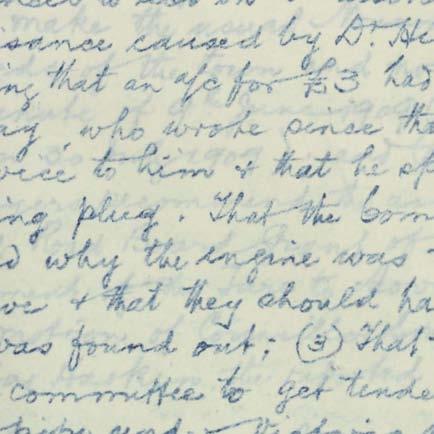 isance caused by Dr. He
ing that an a/c for £3 had
ay, who wrote since tha
vice to him & that he sp
ing plug. That the Com
d why the engine was
ve & that they should ha
was found out; (3) That
committee to get tende